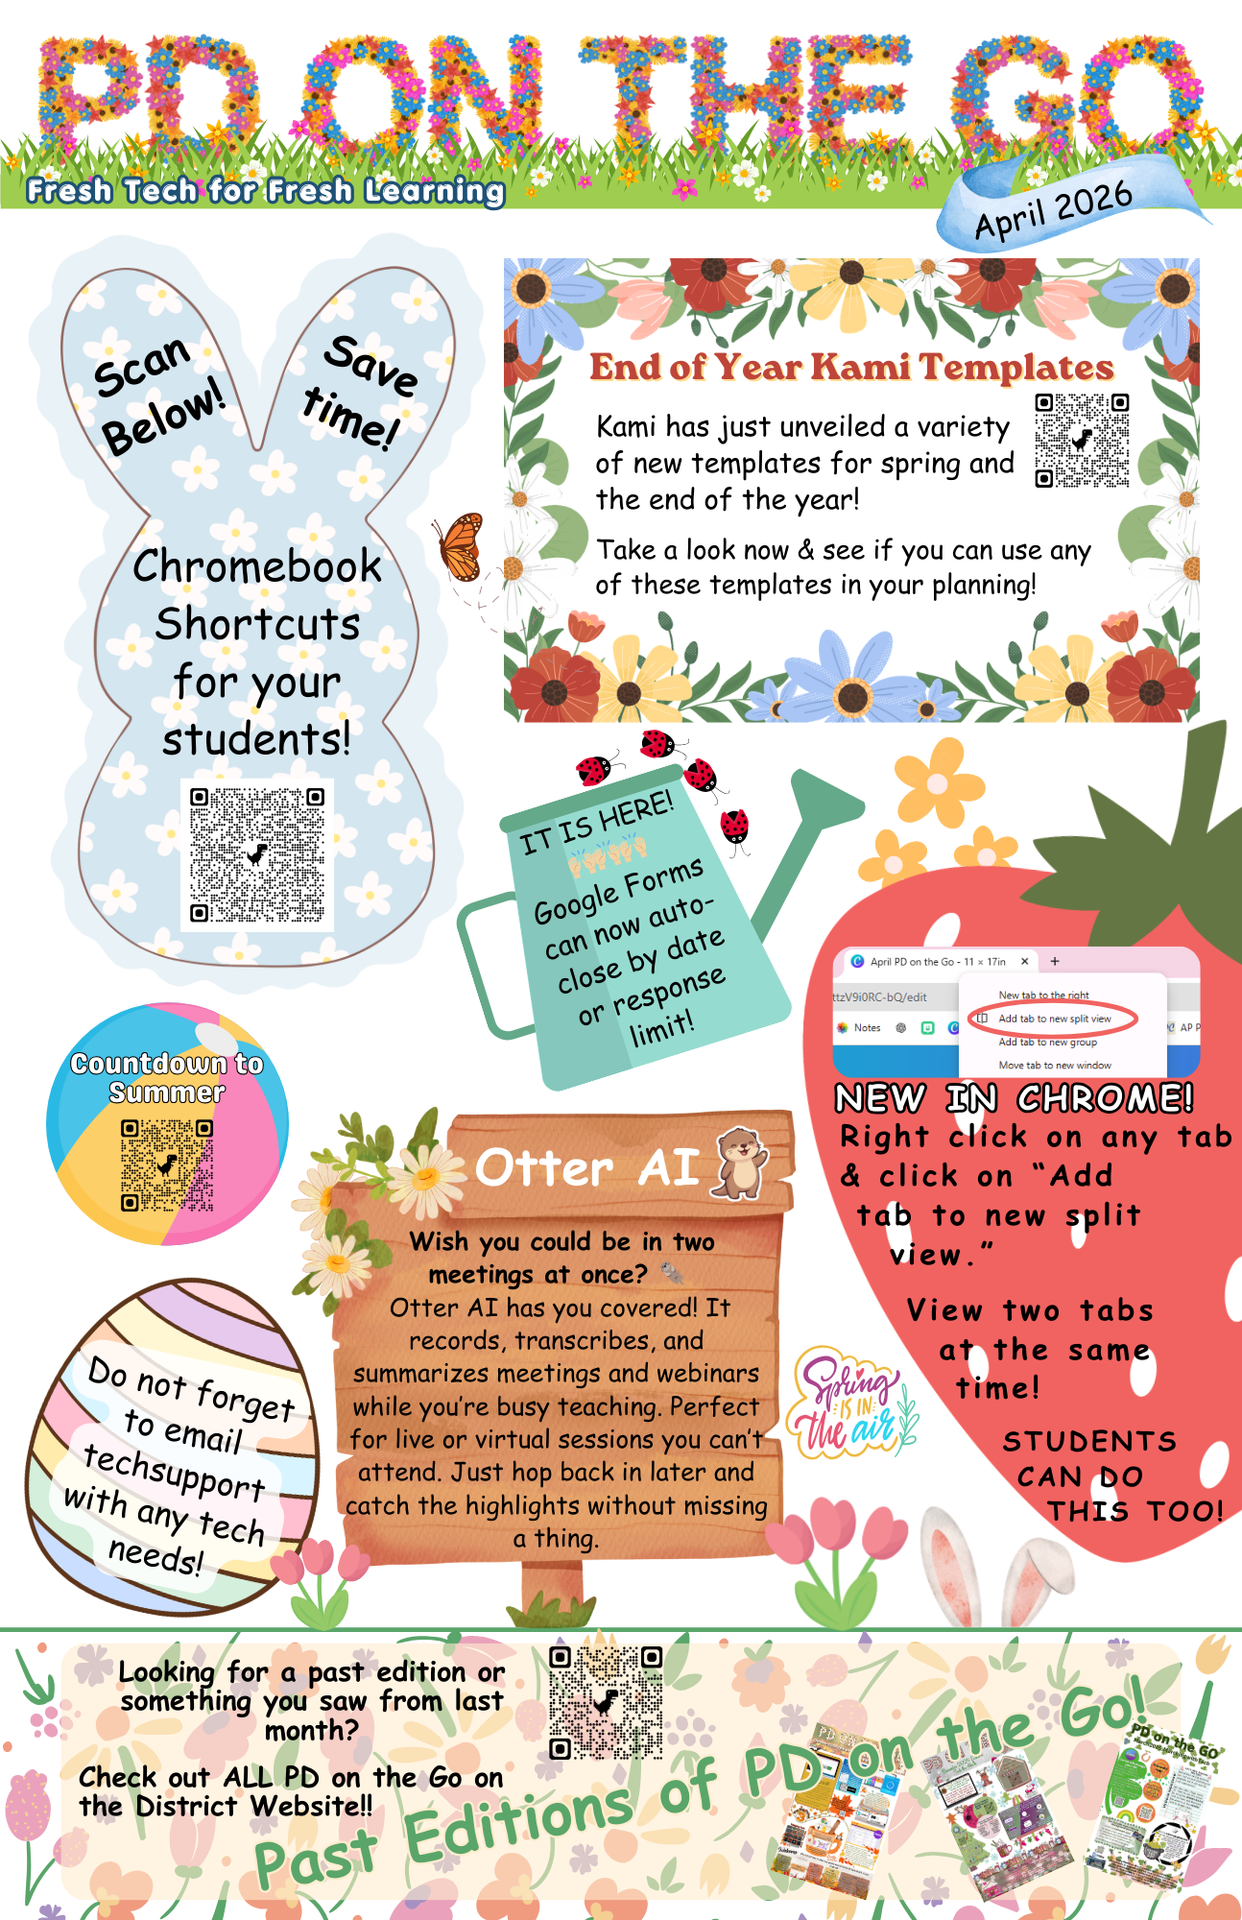 PD ON THE GO
Fresh Tech for Fresh Learning
April 2026
Scan
Below!
Save
time!
Chromebook
Shortcuts
for your
students!
End of Year Kami Templates
Kami has just unveiled a variety
of new templates for spring and
the end of the year!
Take a look now & see if you can use any
of these templates in your planning!
IT IS HERE!
🙌🏻🙌🏻🙌🏻
Google Forms
can now auto-
close by date
or response
limit!
April PD on the Go - 11 × 17in
ttzV9i0RC-bQ/edit
Notes
AP P
New tab to the right
Add tab to new split view
Add tab to new group
Move tab to new window
NEW IN CHROME!
Right click on any tab
& click on “Add
tab to new split
view.”
View two tabs
at the same
time!
STUDENTS
CAN DO
THIS TOO!
Countdown to
Summer
Otter AI
Wish you could be in two
meetings at once? 🦦
Otter AI has you covered! It
records, transcribes, and
summarizes meetings and webinars
while you’re busy teaching. Perfect
for live or virtual sessions you can’t
attend. Just hop back in later and
catch the highlights without missing
a thing.
Do not forget
to email
techsupport
with any tech
needs!
Spring
IS IN
The air
Looking for a past edition or
something you saw from last
month?
Check out ALL PD on the Go on
the District Website!!
Past Editions of PD on the Go!
PD on the GO